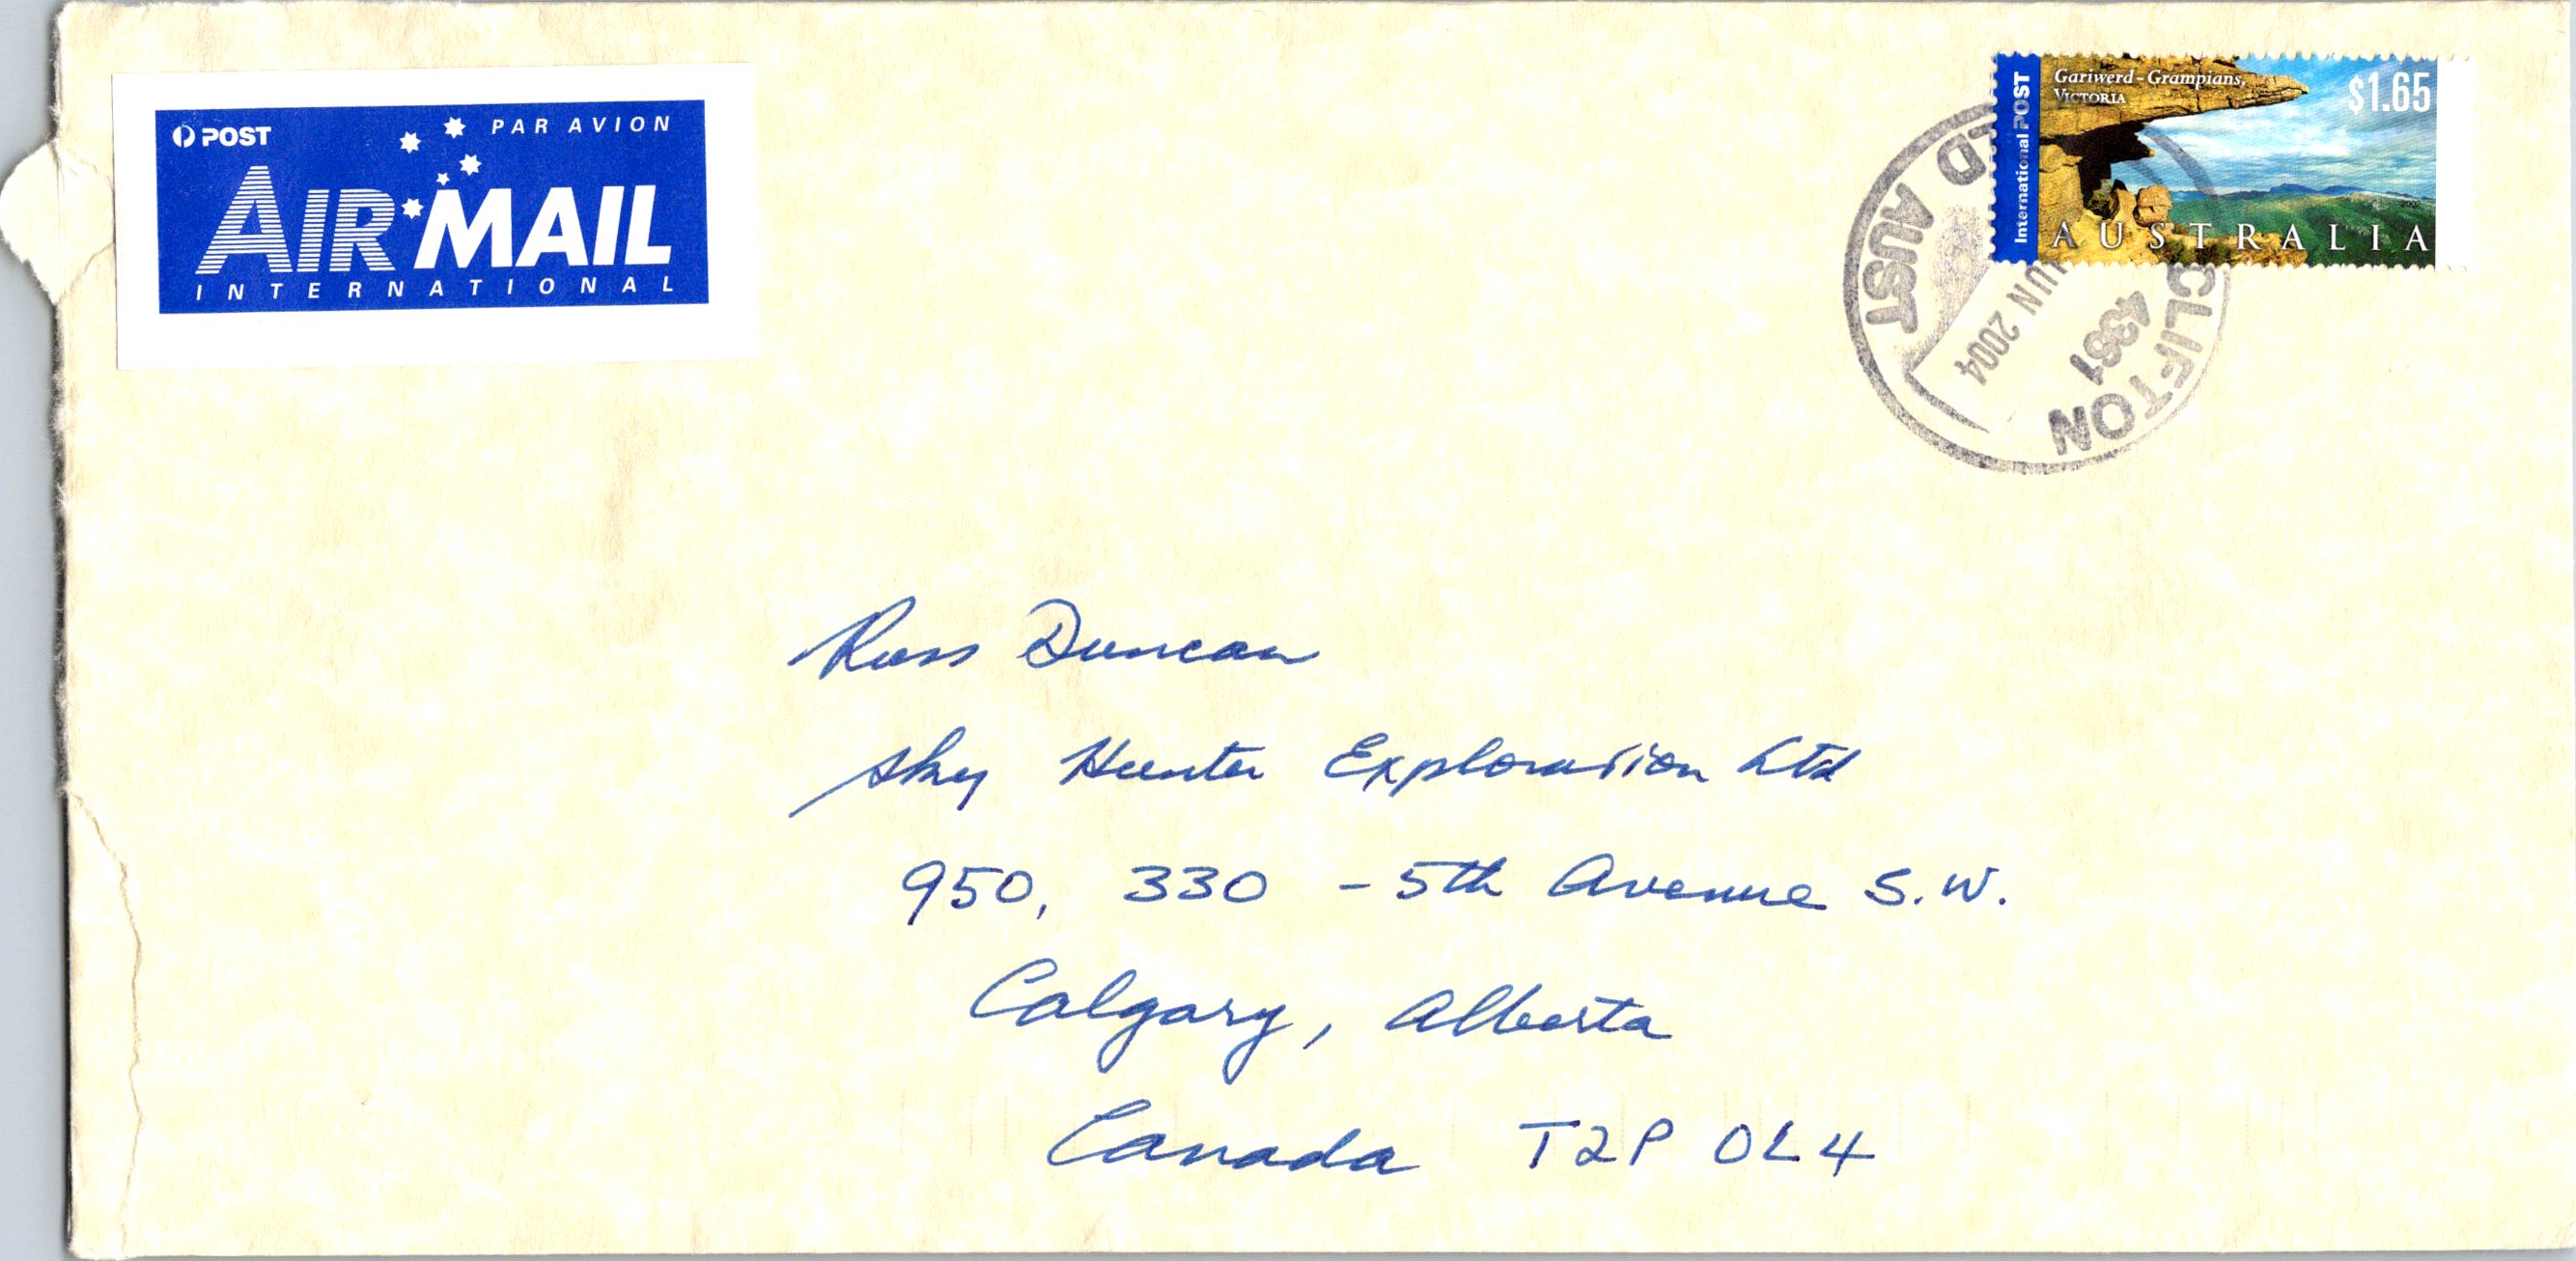 POST
PAR AVION
AIR MAIL
INTERNATIONAL
International POST
Gariwerd - Grampians,
VICTORIA
$1.65
2002
AUSTRALIA
CLIFTON
4361
JUN 2004
LD AUST
Ross Duncan
Sky Hunter Exploration Ltd
950, 330 - 5th Avenue S.W.
Calgary, Alberta
Canada T2P 0L4